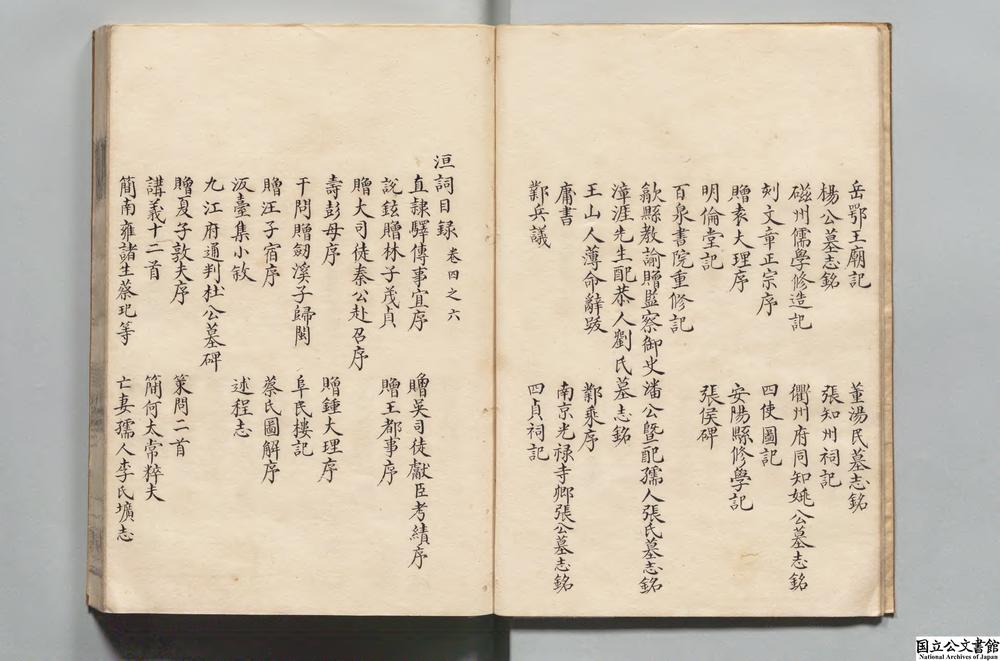 岳鄂王廟記　董湯民墓志銘
楊公墓志銘　張知州祠記
磁州儒學修造記　衢州府同知姚公墓志銘
刻文章正宗序　四使圖記
贈袁大理序　安陽縣修學記
明倫堂記　張侯碑
百泉書院重修記
歙縣教諭贈監察御史潘公曁配孺人張氏墓志銘
漳涯先生配恭人劉氏墓志銘
王山人薄命辭跋　鄴乘序
庸書　南京光禄寺卿張公墓志銘
鄴兵議　四貞祠記
洹詞目录 卷四之六
直隷驛傳事宜序　贈吳司徒獻臣考績序
說鉉贈林子茂貞　贈王都事序
贈大司徒秦公赴召序
壽彭母序　贈鍾大理序
干問贈劒溪子歸閩　阜民樓記
贈汪子宿序　蔡氏圖解序
汳臺集小敘　述程志
九江府通判杜公墓碑
贈夏子敦夫序　策問二首
講義十二首　簡何太常粹夫
簡南雍諸生蔡玘等　亡妻孺人李氏壙志
国立公文書館
National Archives of Japan